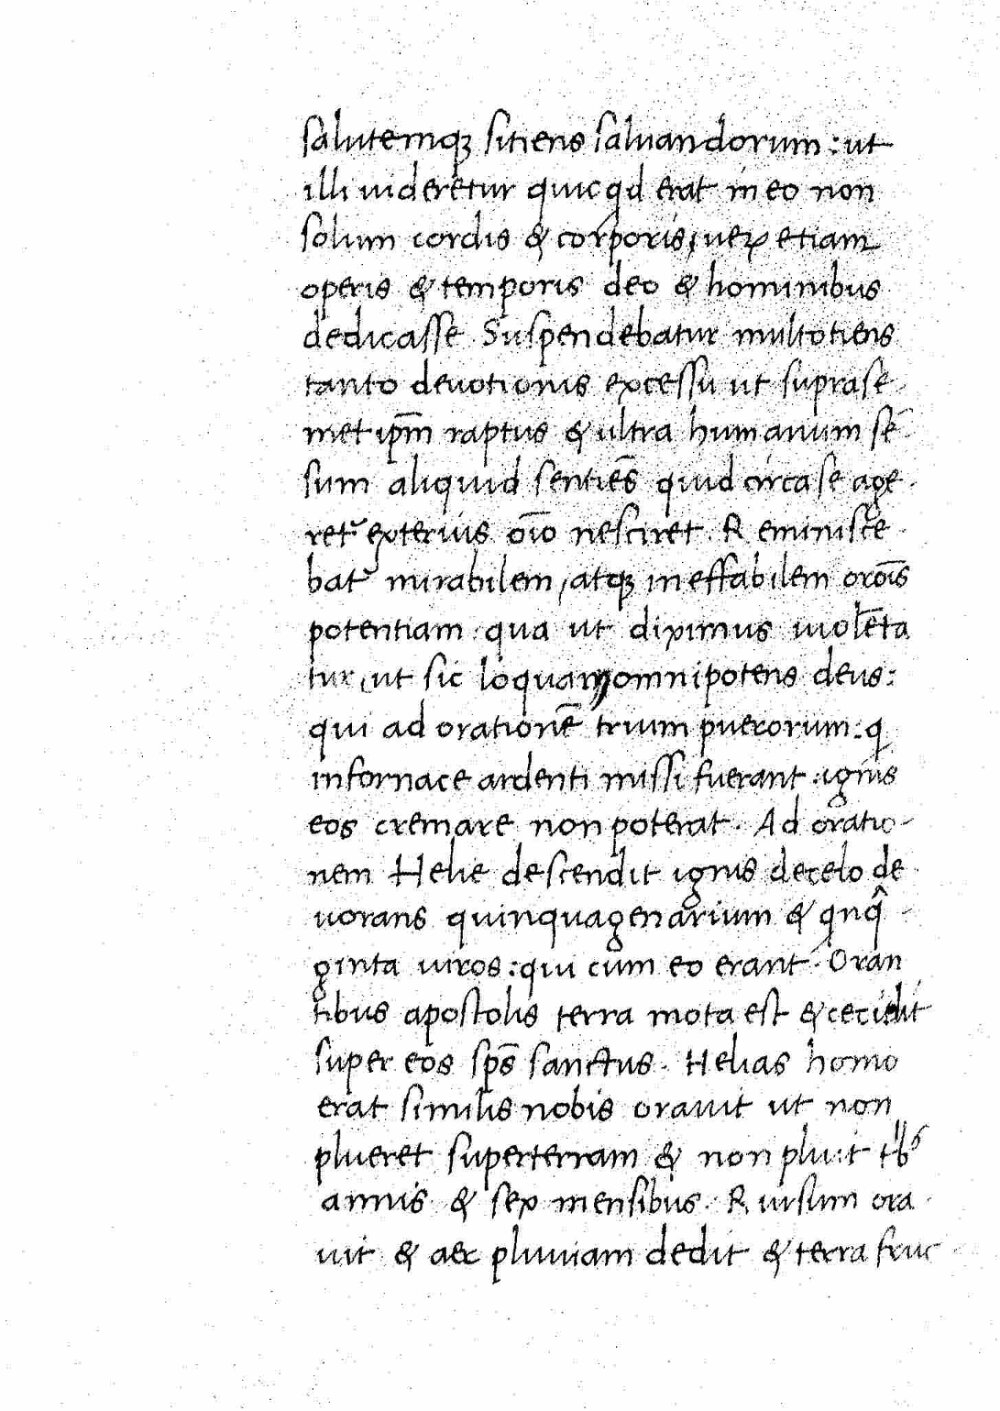 salutemqꝫ sitiens saluandorum : ut
illi uideretur quicqd erat in eo non
solum cordis & corporis, ueꝝ etiam
operis & temporis deo & hominibus
dedicasse. Suspendebatur multotiens
tanto deuotionis excessu ut supra se
met ip̄m raptus & ultra humanum sē
sum aliquid sentiēs quid circa se age
ret᷑ exterius oīo nesciret. Reminisce
bat᷑ mirabilem, atqꝫ ineffabilem orōis
potentiam : qua ut diximus uiolēta
tur, ut sic loquar, omnipotens deus :
qui ad orationē trium puerorum : q
in fornace ardenti missi fuerant : ignis
eos cremare non poterat. Ad oratio-
nem Helie descendit ignis de celo de
uorans quinquagenarium & qnq̂
ginta uiros : qui cum eo erant. Oran
tibus apostolis terra mota est & cecidit
super eos sp̄s sanctus. Helias homo
erat similis nobis orauit ut non
plueret super terram & non pluit tʼbʼ
annis & sex mensibus. Rursum ora
uit & aer pluuiam dedit & terra fruc